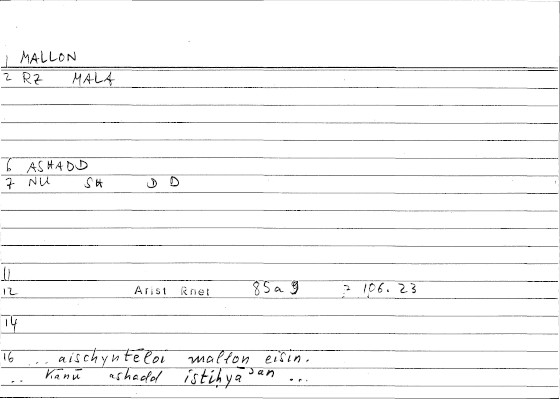 1 MALLON
2 RZ MALA
6 ASHADD
7 NU SH D D
11
12 Arist Rhet 85a9 106.23
14
16 .. aischyntēloi mallon eisin.
.. Kānū ashadd istiḥyāʾan ...